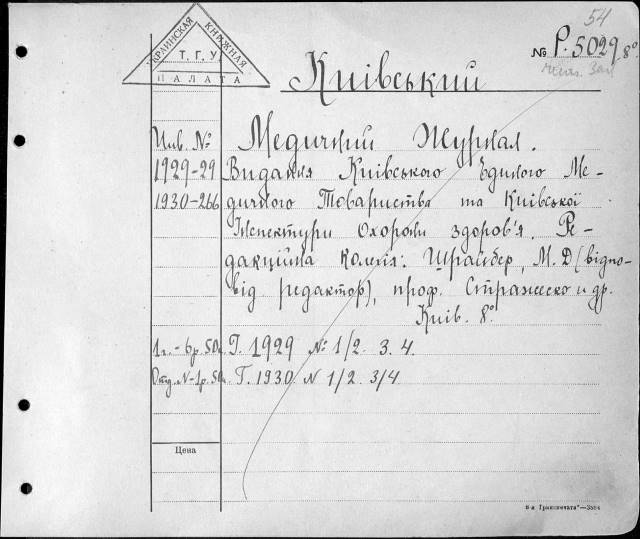 54
УКРАИНСКАЯ КНИЖНАЯ
Т. Г. У.
ПАЛАТА
№ Р. 5029 8°
Київський
Инв. № Медичний Журнал.
1929-29 Видання Київського Єдиного Ме-
1930-266 дичного Товариства та Київської
Інспектури Охорони здоров'я. Ре-
дакційна Колегія: Шрайбер, М. Д (відпо-
від редактор), проф. Стражеско и др.
Київ. 8°
1г. - 6р. 50к. Г. 1929 № 1/2. 3. 4.
Отд. N - 1р. 50к. Г. 1930. N 1/2. 3/4
Цена
6-я "—3504